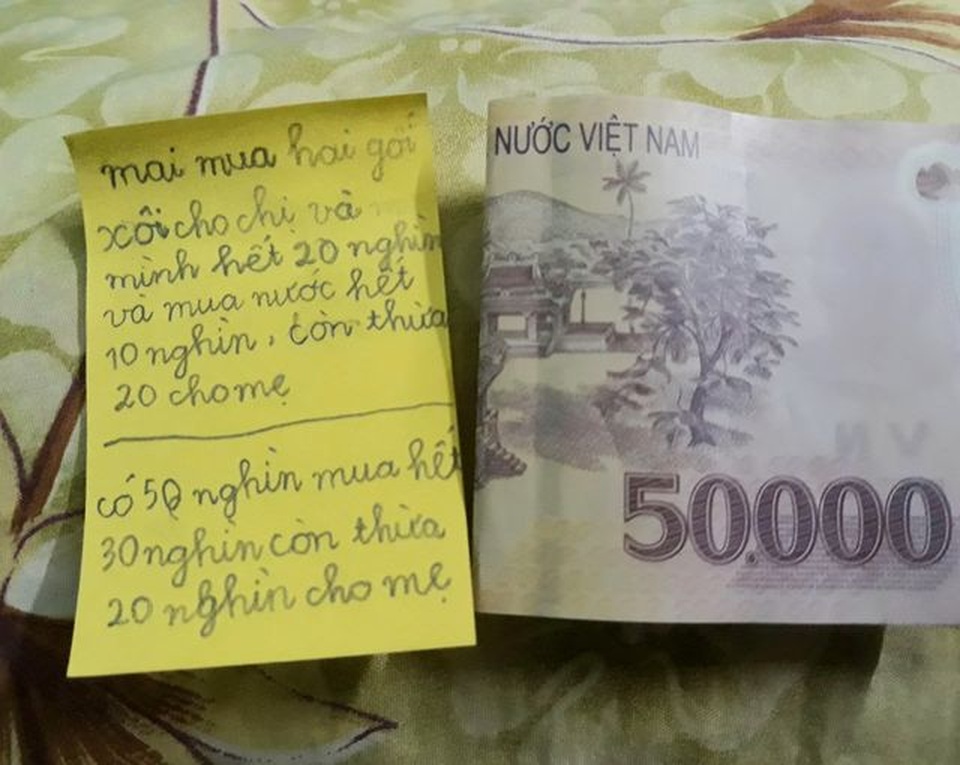 mai mua hai gói
xôi cho chị và
mình hết 20 nghìn
và mua nước hết
10 nghìn, còn thừa
20 cho mẹ
có 50 nghìn mua hết
30 nghìn còn thừa
20 nghìn cho mẹ
NƯỚC VIỆT NAM
50.000